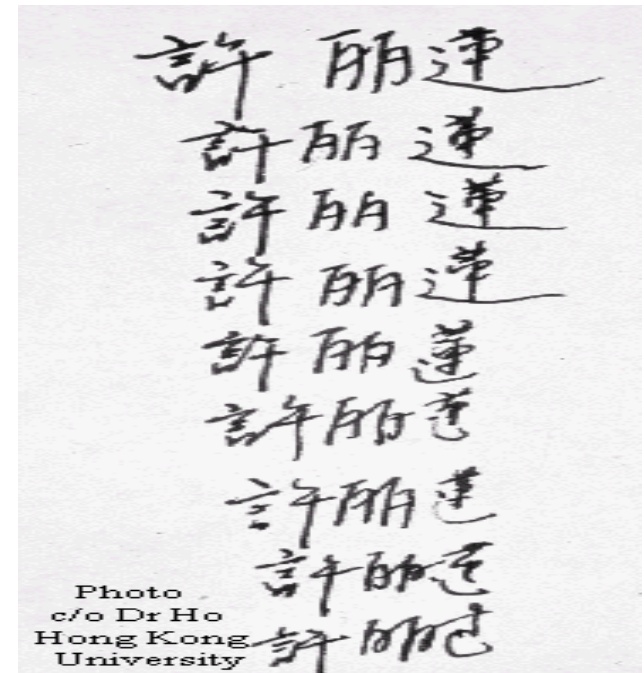 許 丽蓮
許丽蓮
許丽蓮
許丽蓮
許丽蓮
許丽蓮
許丽蓮
許丽蓮
許丽蓮
Photo
c/o Dr Ho
Hong Kong
University